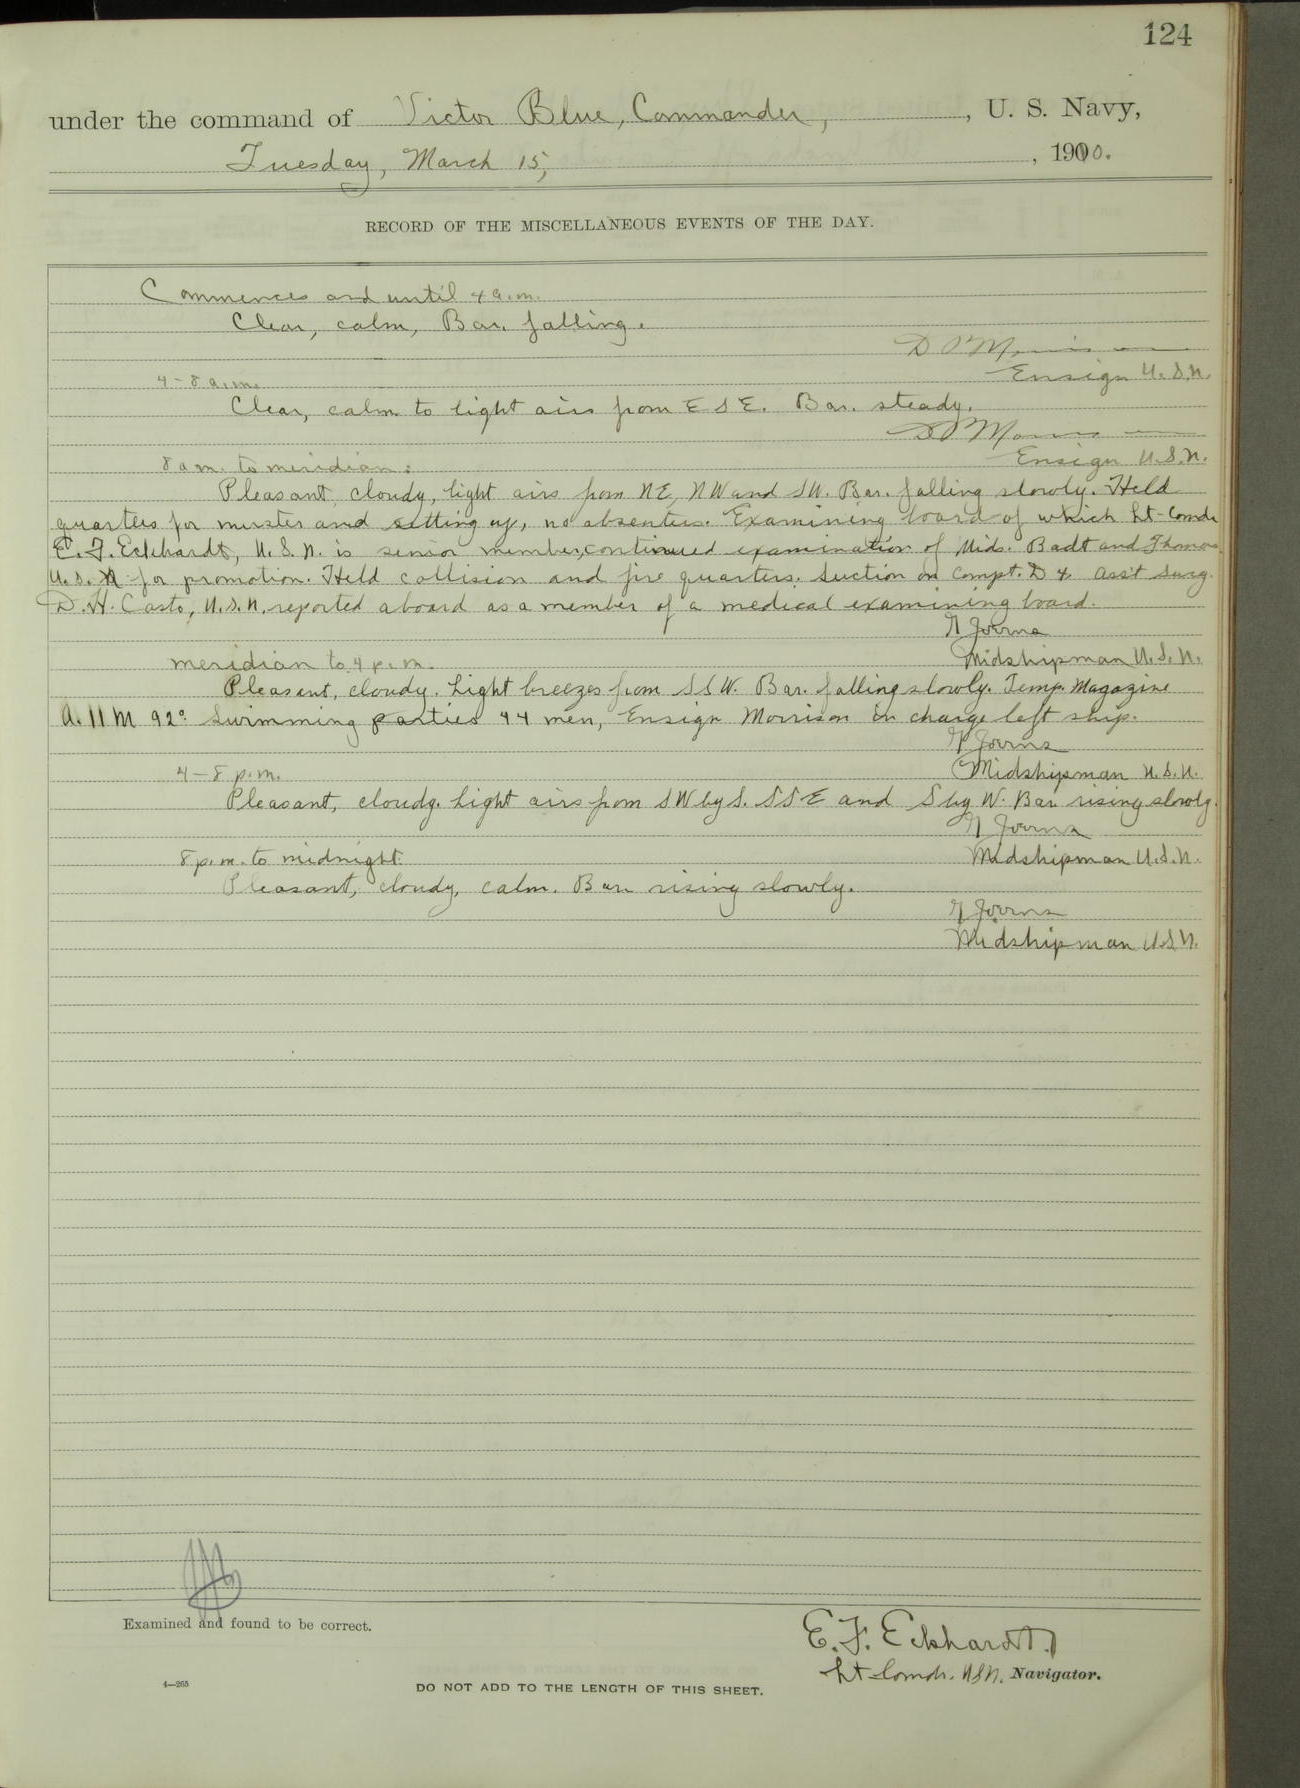 124
under the command of Victor Blue, Commander, , U. S. Navy,
Tuesday, March 15, , 1910.
RECORD OF THE MISCELLANEOUS EVENTS OF THE DAY.
Commences and until 4 a.m.
Clear, calm, Bar. falling.
D P Morrison
Ensign U.S.N.
4-8 a.m.
Clear, calm to light airs from E S E. Bar. steady.
D P Morrison
Ensign U.S.N.
8 a m. to meridian:
Pleasant, cloudy, light airs from NE, NW and SW. Bar. falling slowly. Held
quarters for muster and setting up, no absentees. Examining board of which Lt-Comdr
E. F. Eckhardt, U.S.N. is senior member, continued examination of Mids. Badt and Thomas
U.S.N. for promotion. Held collision and fire quarters. Suction on Compt. D 4. Ass't Surg.
D. H. Casto, U.S.N. reported aboard as a member of a medical examining board.
Midshipman U.S.N.
meridian to 4 p.m.
Pleasant, cloudy. Light breezes from SSW. Bar. falling slowly. Temp. Magazine
A.11M 92° Swimming parties 44 men, Ensign Morrison in charge left ship.
Midshipman U.S.N.
4-8 p.m.
Pleasant, cloudy. Light airs from SW by S. SSE and S by W. Bar. rising slowly.
Midshipman U.S.N.
8 p.m. to midnight.
Pleasant, cloudy, calm. Bar. rising slowly.
Midshipman U.S.N.
Examined and found to be correct.
E. F. Eckhardt.
Lt Comdr. USN, Navigator.
4—265
DO NOT ADD TO THE LENGTH OF THIS SHEET.